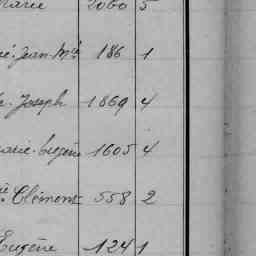 Marie 2060 5
ie. Jean-Mie 186 1
e. Joseph 1869 4
arie-Eugène 1605 4
ie. Clément 558 2
Eugène 1241